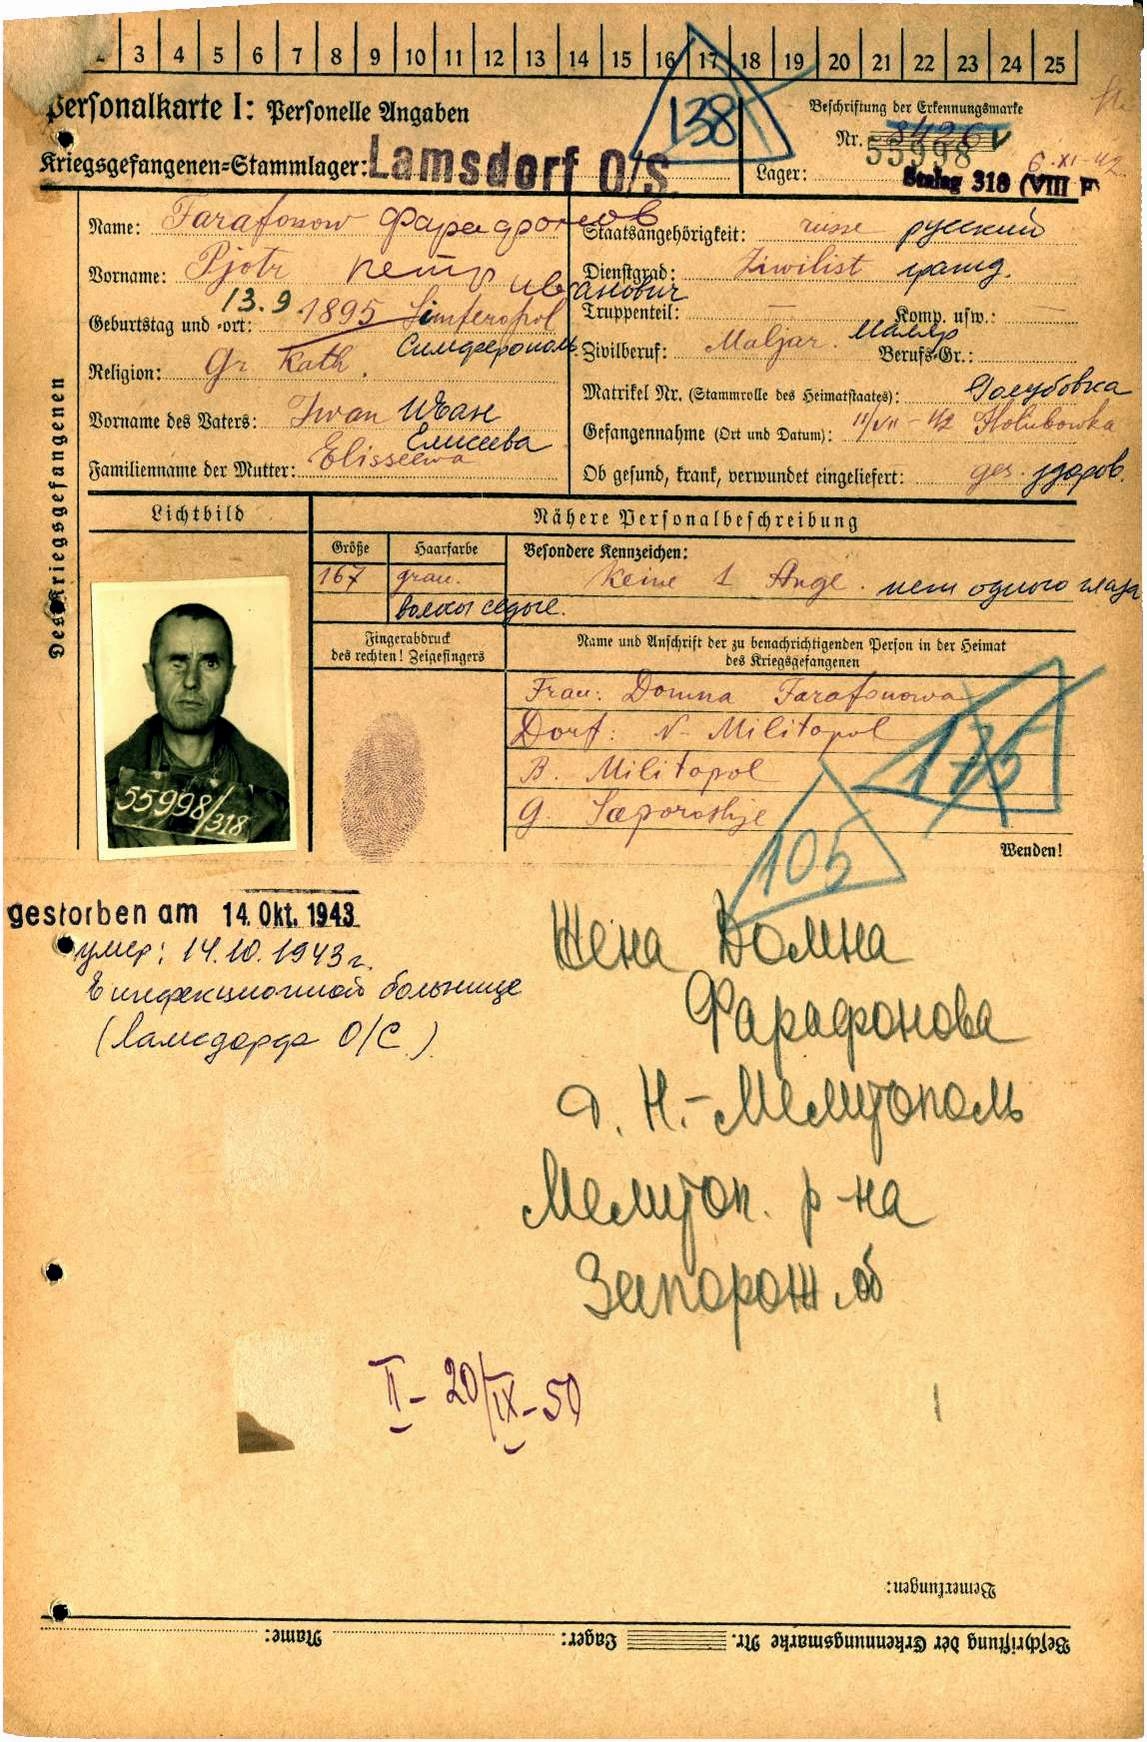 2 3 4 5 6 7 8 9 10 11 12 13 14 15 16 17 18 19 20 21 22 23 24 25
Personalkarte I: Personelle Angaben
138
Beschriftung der Erkennungsmarke
Nr. 8426
55998
Kriegsgefangenen-Stammlager: Lamsdorf O/S
Lager: Stalag 318 (VIII F)
6.XI-42
Des Kriegsgefangenen
Name: Farafonow Фарафонов
Vorname: Pjotr Петр Иванович
Geburtstag und -ort: 13.9.1895 Simferopol
Симферополь
Religion: Gr. Kath.
Vorname des Vaters: Iwan Иван
Familienname der Mutter: Elisseewa Елисеева
Staatsangehörigkeit: russe русский
Dienstgrad: Ziwilist гражд.
Truppenteil: — Komp. usw.: —
Zivilberuf: Maljar. маляр Berufs-Gr.:
Matrikel Nr. (Stammrolle des Heimatstaates):
Голубовка
Gefangennahme (Ort und Datum): 11/VII-42 Holubowka
Ob gesund, krank, verwundet eingeliefert: ges. здоров.
Lichtbild
Nähere Personalbeschreibung
Größe Haarfarbe Besondere Kennzeichen:
167 grau. keine 1 Auge. нет одного глаза
волосы седые.
Fingerabdruck
des rechten! Zeigefingers
Name und Anschrift der zu benachrichtigenden Person in der Heimat
des Kriegsgefangenen
Frau: Domna Farafonowa
Dorf: N- Militopol
R. Militopol
G. Saporoshje
175
105
55998/318
Wenden!
gestorben am 14. Okt. 1943
умер: 14.10.1943г.
в инфекционной больнице
(Ламсдорф О/С)
Жена Домна
Фарафонова
д. Н.-Мелитополь
Мелитоп. р-на
Запорож. об
II- 20/IX-50
Bemerkungen:
Beschriftung der Erkennungsmarke Nr. Lager: Name: